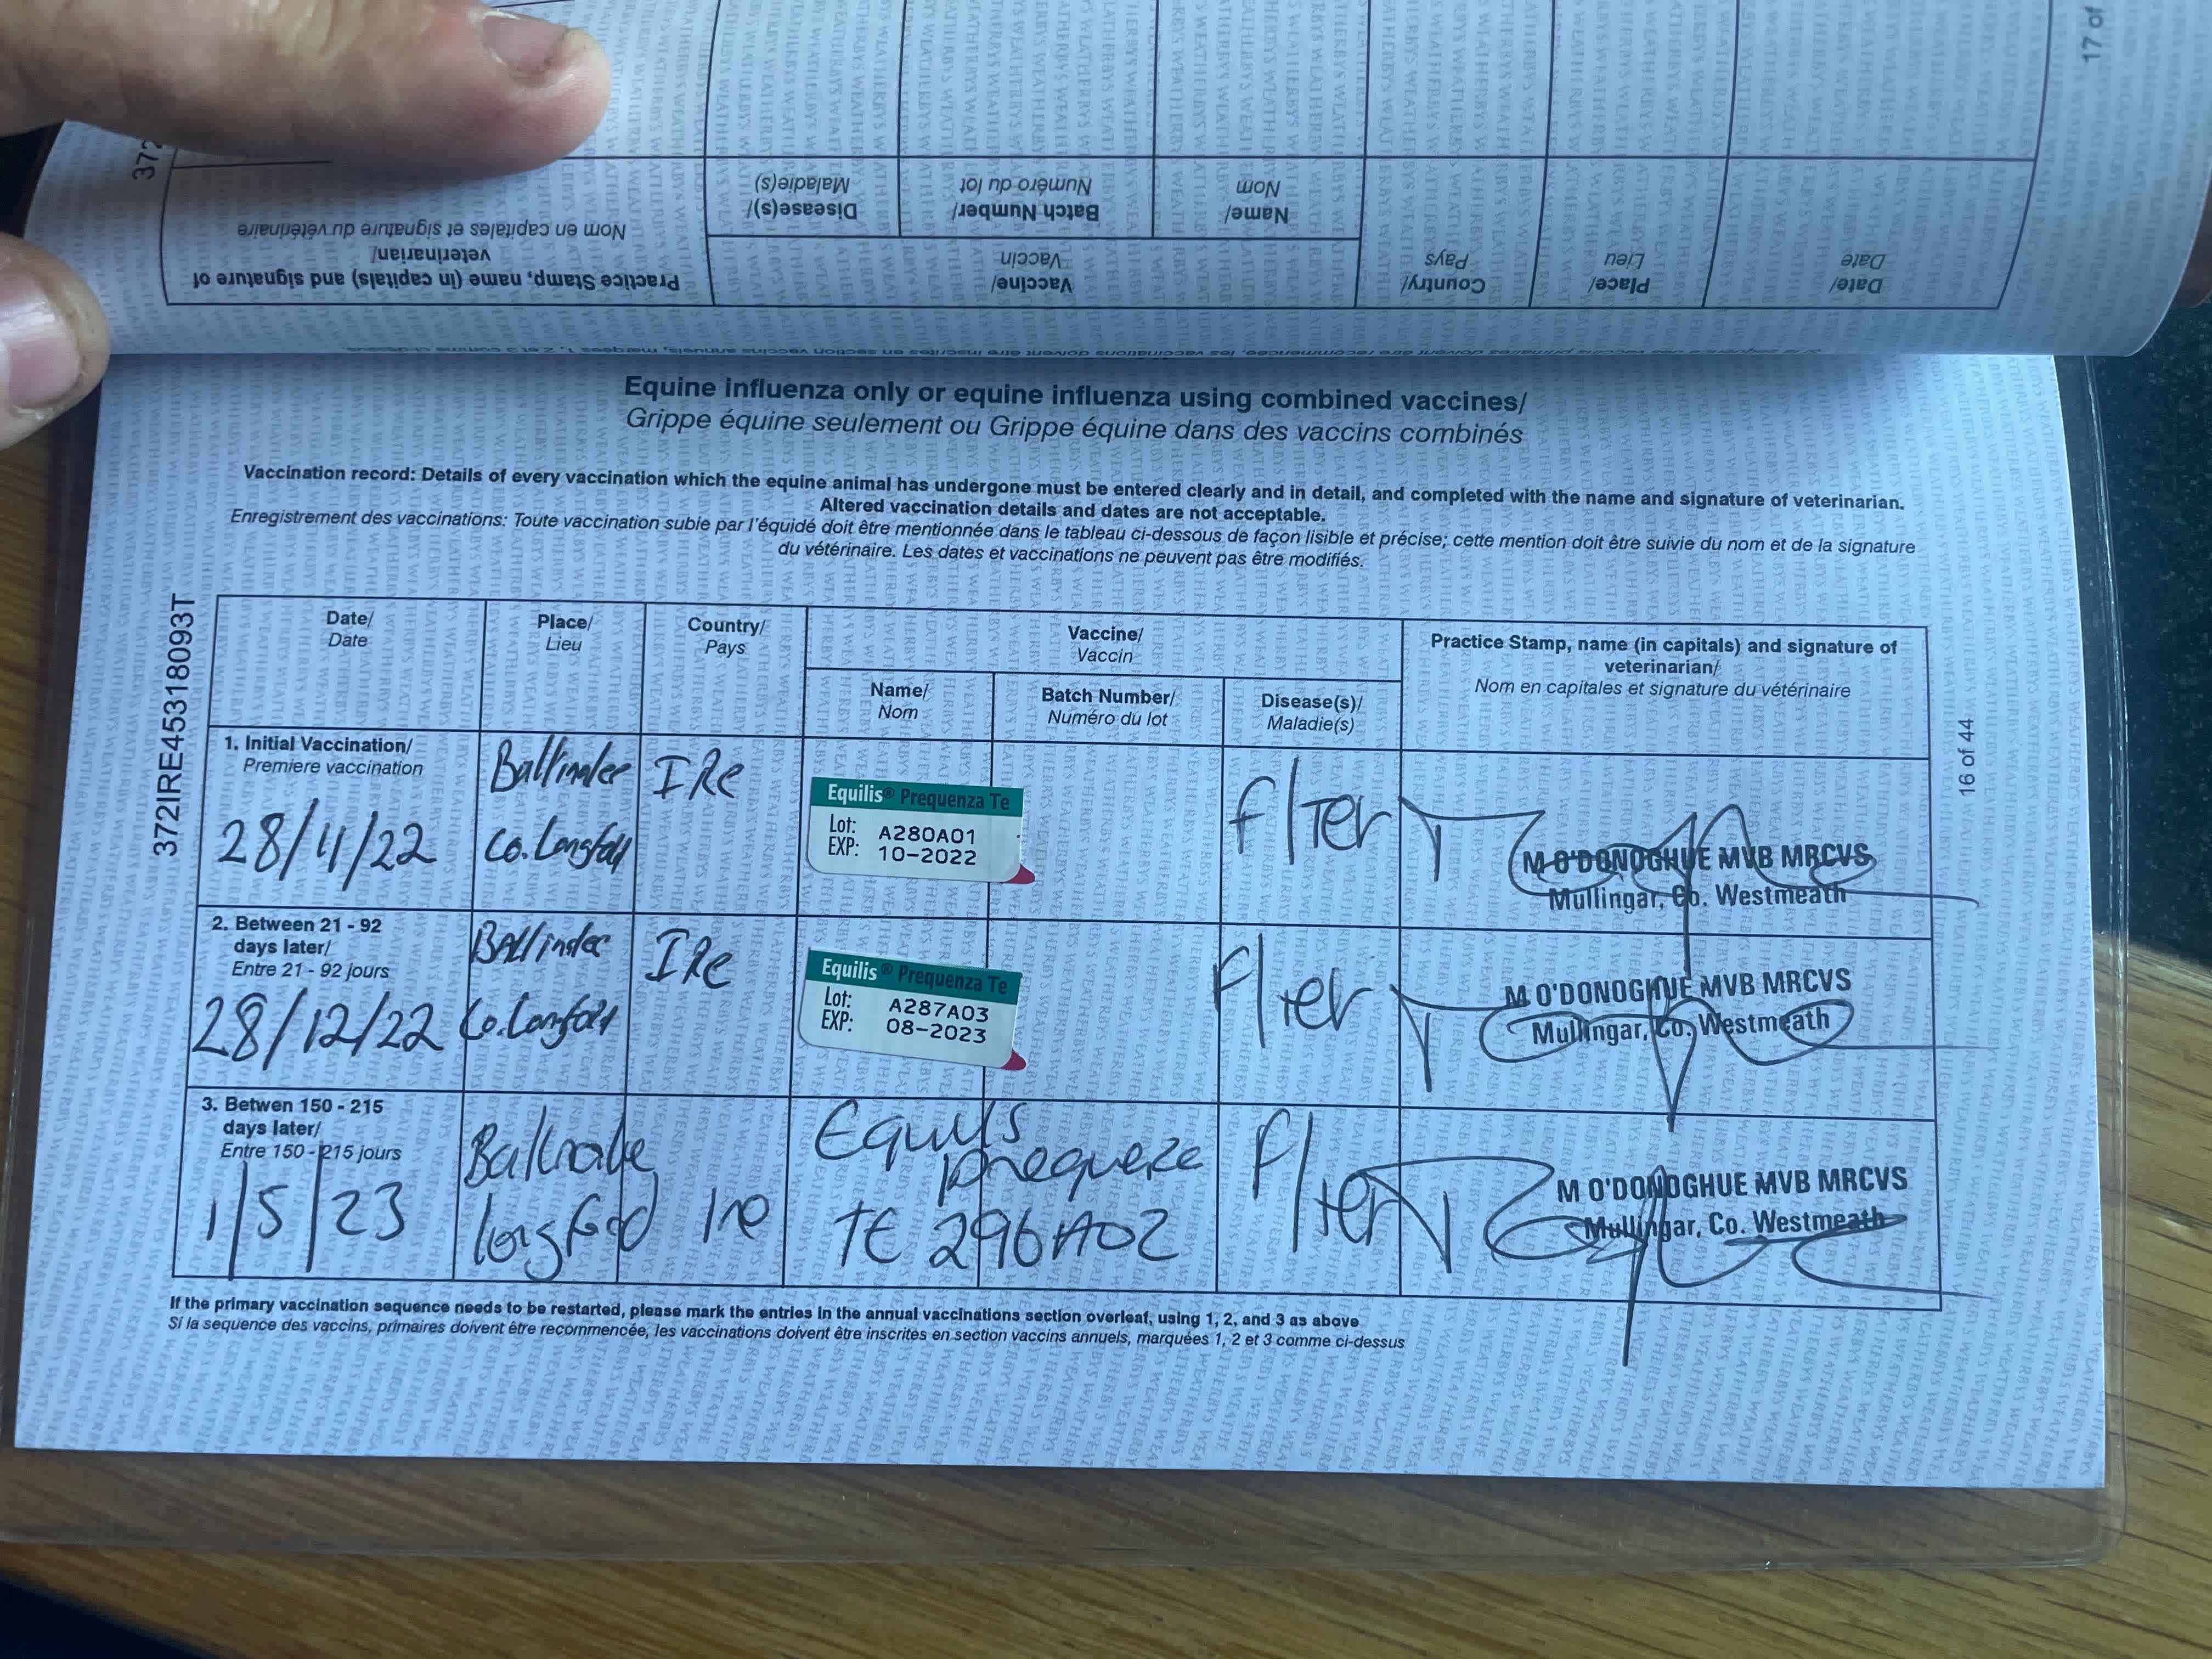 17 of
372
Practice Stamp, name (in capitals) and signature of
veterinarian/
Nom en capitales et signature du vétérinaire
Vaccine/
Vaccin
Disease(s)/
Maladie(s)
Batch Number/
Numéro du lot
Name/
Nom
Country/
Pays
Place/
Lieu
Date/
Date
Equine influenza only or equine influenza using combined vaccines/
Grippe équine seulement ou Grippe équine dans des vaccins combinés
Vaccination record: Details of every vaccination which the equine animal has undergone must be entered clearly and in detail, and completed with the name and signature of veterinarian.
Altered vaccination details and dates are not acceptable.
Enregistrement des vaccinations: Toute vaccination subie par l'équidé doit être mentionnée dans le tableau ci-dessous de façon lisible et précise; cette mention doit être suivie du nom et de la signature
du vétérinaire. Les dates et vaccinations ne peuvent pas être modifiés.
372IRE45318093T
16 of 44
Date/
Date
Place/
Lieu
Country/
Pays
Vaccine/
Vaccin
Name/
Nom
Batch Number/
Numéro du lot
Disease(s)/
Maladie(s)
Practice Stamp, name (in capitals) and signature of
veterinarian/
Nom en capitales et signature du vétérinaire
1. Initial Vaccination/
Premiere vaccination
28/11/22
Co. Longford
IRe
Equilis® Prequenza Te
Lot: A280A01
EXP: 10-2022
M O'DONOGHUE MVB MRCVS
Mullingar, Co. Westmeath
2. Between 21 - 92
days later/
Entre 21 - 92 jours
28/12/22
Co. Longford
IRe
Equilis® Prequenza Te
Lot: A287A03
EXP: 08-2023
M O'DONOGHUE MVB MRCVS
Mullingar, Co. Westmeath
3. Betwen 150 - 215
days later/
Entre 150 - 215 jours
1/5/23
longford
Ire
TE 296A02
M O'DONOGHUE MVB MRCVS
Mullingar, Co. Westmeath
If the primary vaccination sequence needs to be restarted, please mark the entries in the annual vaccinations section overleaf, using 1, 2, and 3 as above
Si la sequence des vaccins, primaires doivent être recommencée, les vaccinations doivent être inscrites en section vaccins annuels, marquées 1, 2 et 3 comme ci-dessus